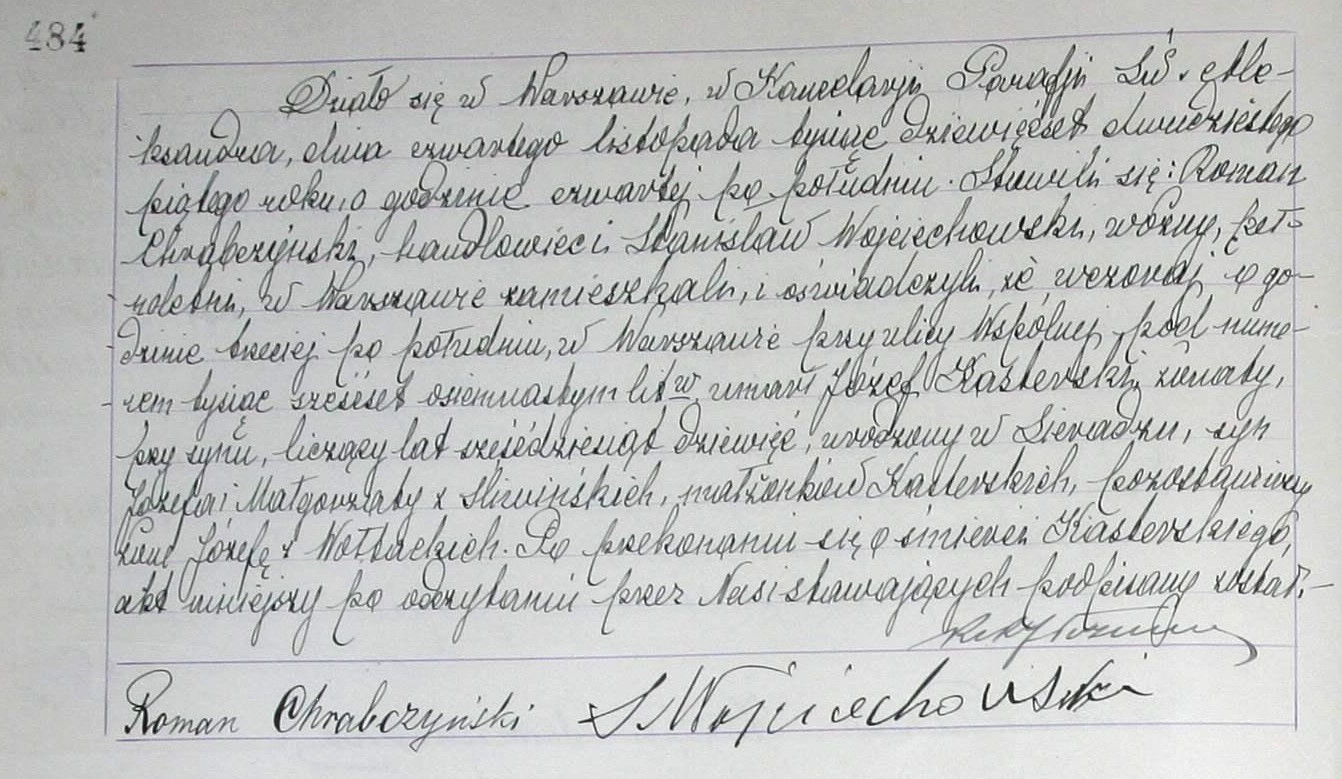 484
Działo się w Warszawie, w Kancelaryi Parafji Św. Ale-
ksandra, dnia czwartego listopada tysiąc dziewięćset dwudziestego
piątego roku, o godzinie czwartej po południu. Stawili się: Roman
Chrabczyński, handlowiec i Stanisław Wojciechowski, woźny, peł-
noletni, w Warszawie zamieszkali, i oświadczyli, że wczoraj o go-
dzinie trzeciej po południu, w Warszawie przy ulicy Wspólnej pod nume-
rem tysiąc sześćset osiemnastym lit w. umarł Józef Kasterski, żonaty,
przy synu, liczący lat sześćdziesiąt dziewięć, urodzony w Sieradzu, syn
Józefa i Małgorzaty z Śliwińskich, małżonków Kasterskich, pozostawiwszy
żonę Józefę z. Po przekonaniu się o śmierci Kasterskiego,
akt niniejszy po odczytaniu przez Nas i stawających podpisany został.-
Roman Chrabczyński S. Wojciechowski